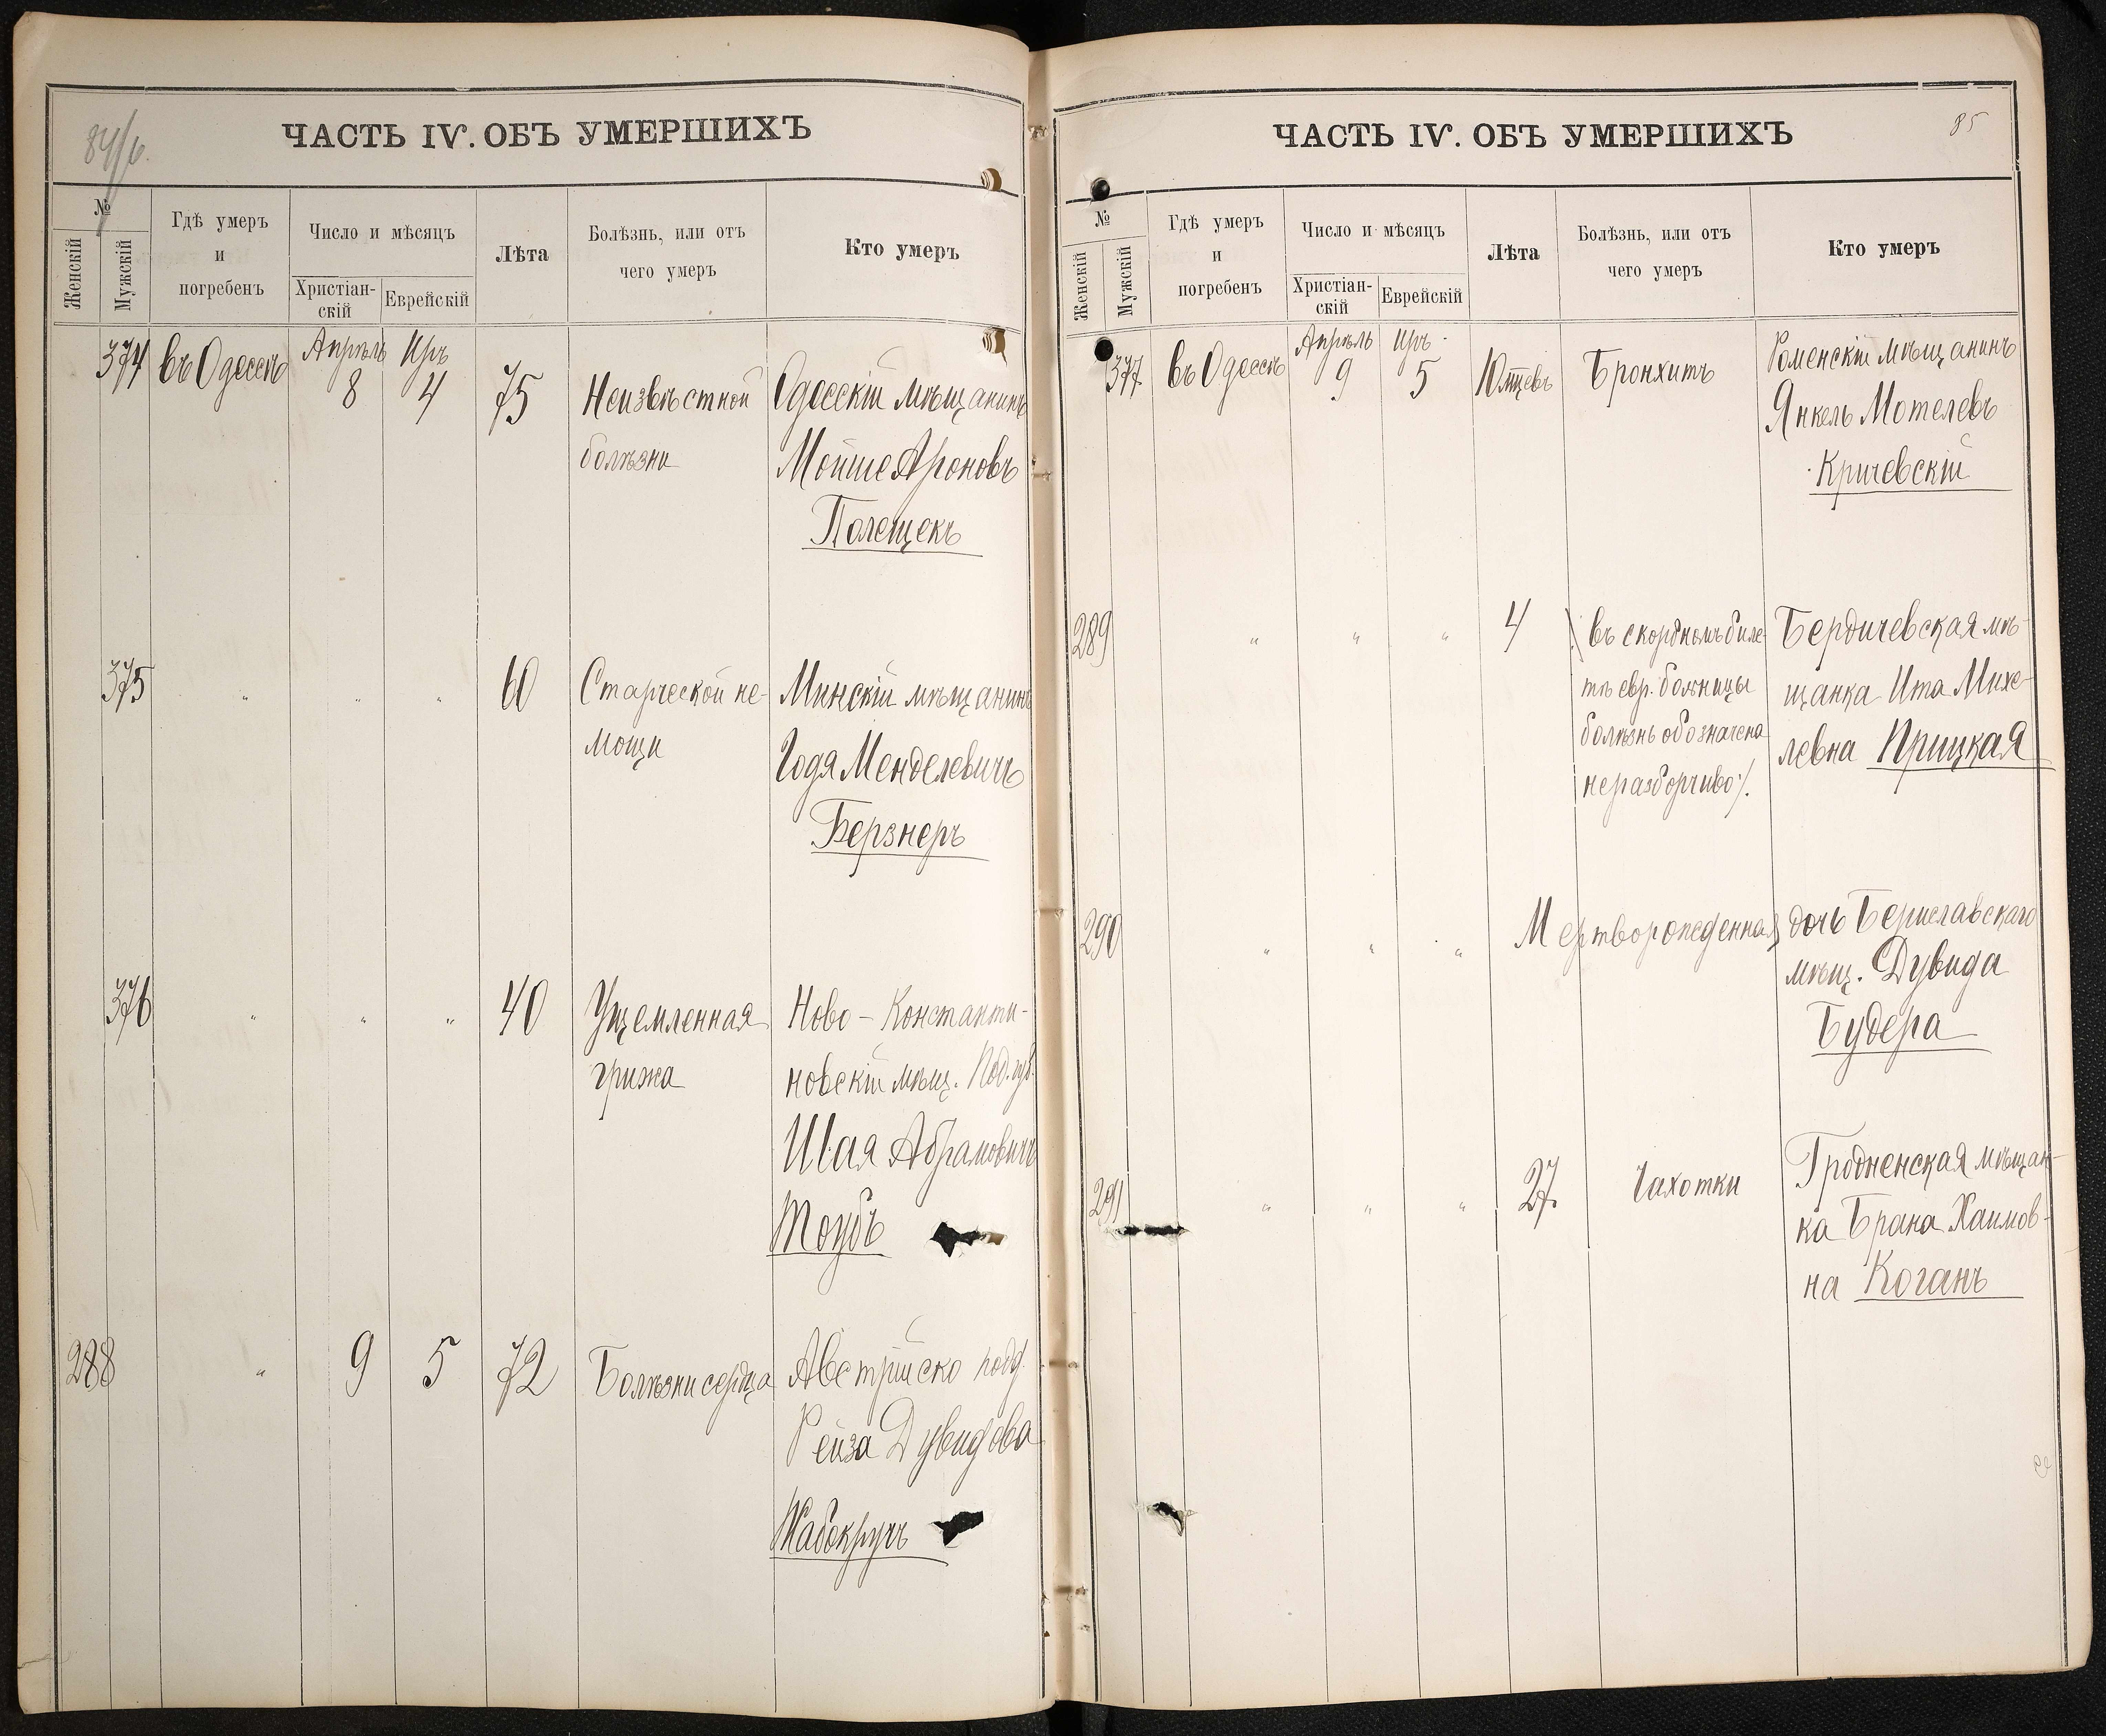 84/б.
ЧАСТЬ IV. ОБЪ УМЕРШИХЪ
№
Женскій
Мужскій
Гдѣ умеръ
и
погребенъ
Число и мѣсяцъ
Христіан-
скій
Еврейскій
Лѣта
Болѣзнь, или отъ
чего умеръ
Кто умеръ
374 въ Одессѣ Апрѣль Иръ
8 4 75 Неизвѣстной Одесскій мѣщанинъ
болѣзни Мойше Ароновъ
Полещекъ
375 " " " 60 Старческой не- Минскій мѣщанинъ
мощи Годя Менделевичъ
Берзнеръ
376 " " " 40 Ущемленная Ново-Константи-
грижа новскій мѣщ. Под. губ.
Шая Абрамовичъ
Тоубъ
288 " 9 5 72 Болѣзни сердца Австрійско подд.
Рейза Дувидова
Жабокручъ
85
ЧАСТЬ IV. ОБЪ УМЕРШИХЪ
№
Женскій
Мужскій
Гдѣ умеръ
и
погребенъ
Число и мѣсяцъ
Христіан-
скій
Еврейскій
Лѣта
Болѣзнь, или отъ
чего умеръ
Кто умеръ
377 въ Одессѣ Апрѣль Иръ
9 5 10 мцевъ Бронхитъ Роменскій мѣщанинъ
Янкель Мотелевъ
Кричевскій
289 " " " 4 въ скорбномъ биле- Бердичевская мѣ-
тѣ евр. больницы щанка Ита Михе-
болѣзнь обозначена левна Прицкая
неразборчиво/.
290 " " " Мертворожденная дочь Бериславскаго
мѣщ. Дувида
Будера
291 " " " 27 Чахотки Гродненская мѣщан-
ка Брана Хаимов-
на Коганъ